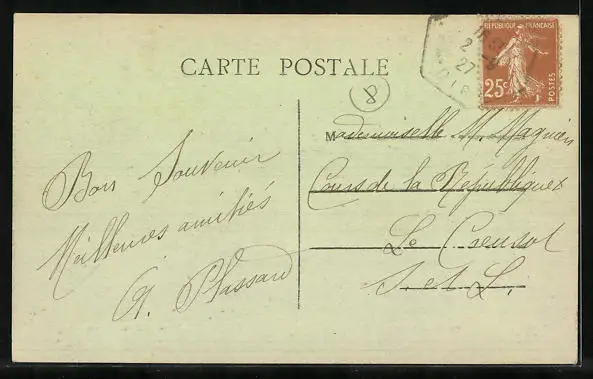 CARTE POSTALE
REPUBLIQUE FRANÇAISE
25c
POSTES
2
27
8
Mademoiselle M. Magnien
Cours de la République
Le Creusot
S. et L.
Bon Souvenir
Meilleures amitiés
Plassard